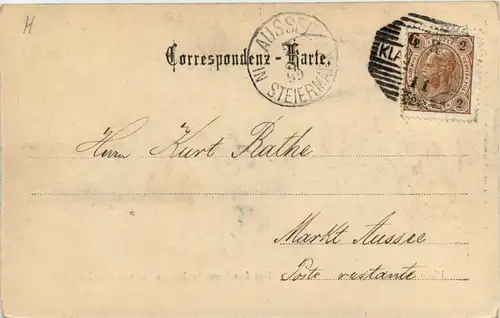 H
AUSSEE
IN STEIERMARK
KLA
2 2
Correspondenz-Karte.
Herrn Kurt Rathe
Markt Aussee
Poste restante